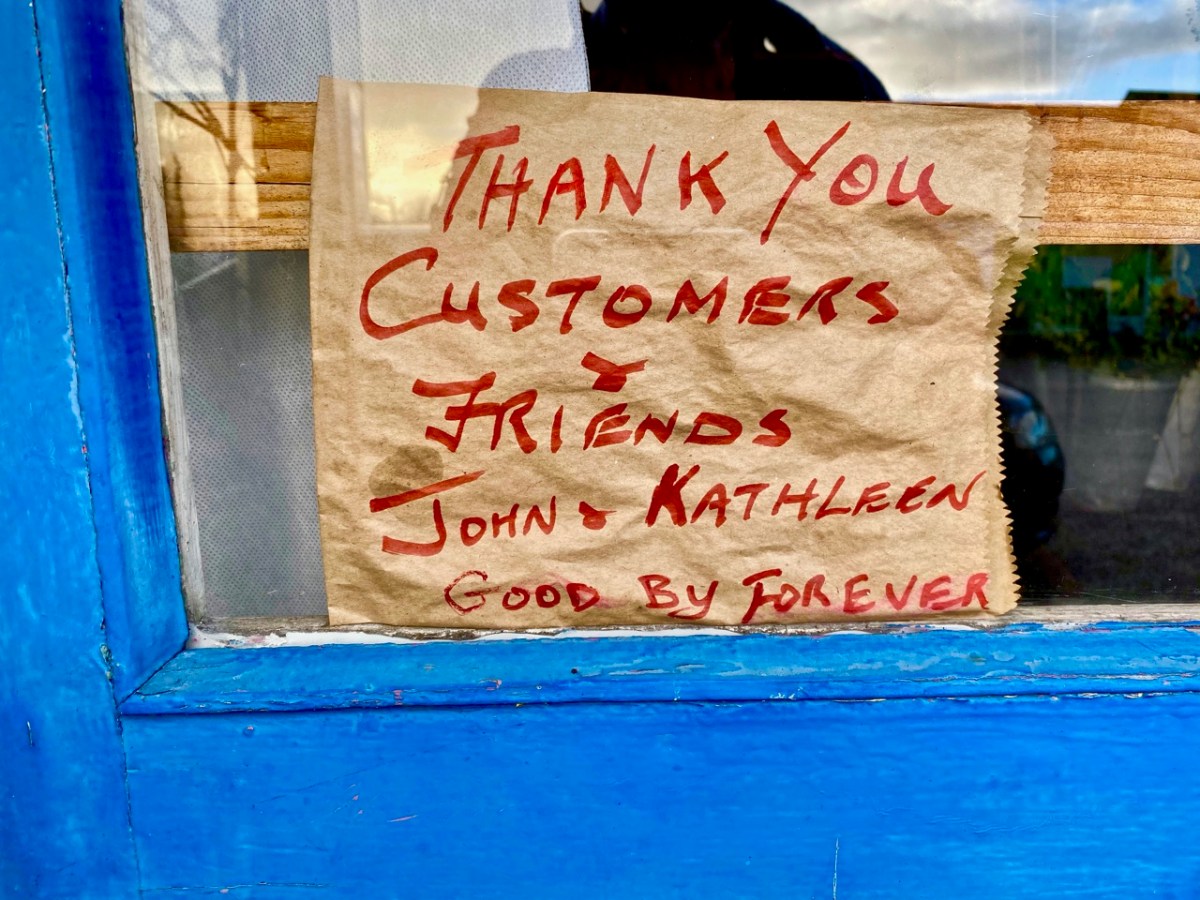 THANK YOU
CUSTOMERS
&
FRIENDS
JOHN & KATHLEEN
GOOD BY FOREVER